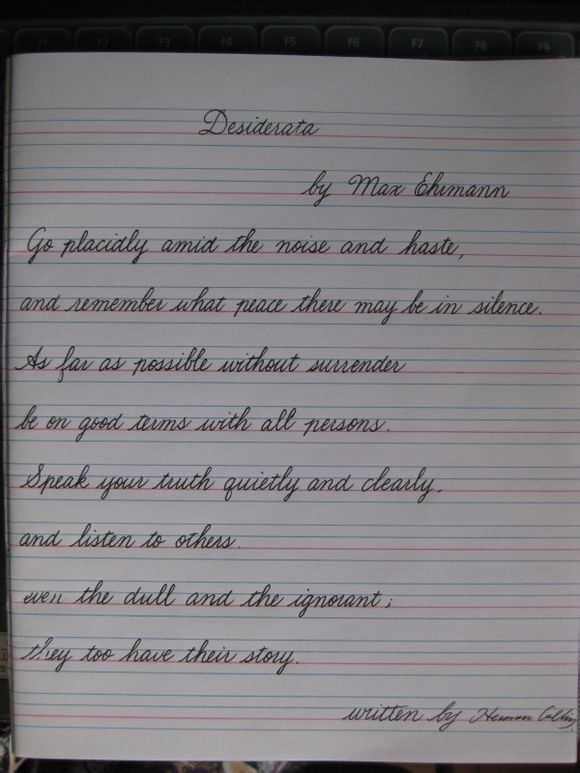 F1 F2 F3 F4 F5 F6 F7 F8 F9
Desiderata
by Max Ehrmann
Go placidly amid the noise and haste,
and remember what peace there may be in silence.
As far as possible without surrender
be on good terms with all persons.
Speak your truth quietly and clearly.
and listen to others.
even the dull and the ignorant;
they too have their story.
written by